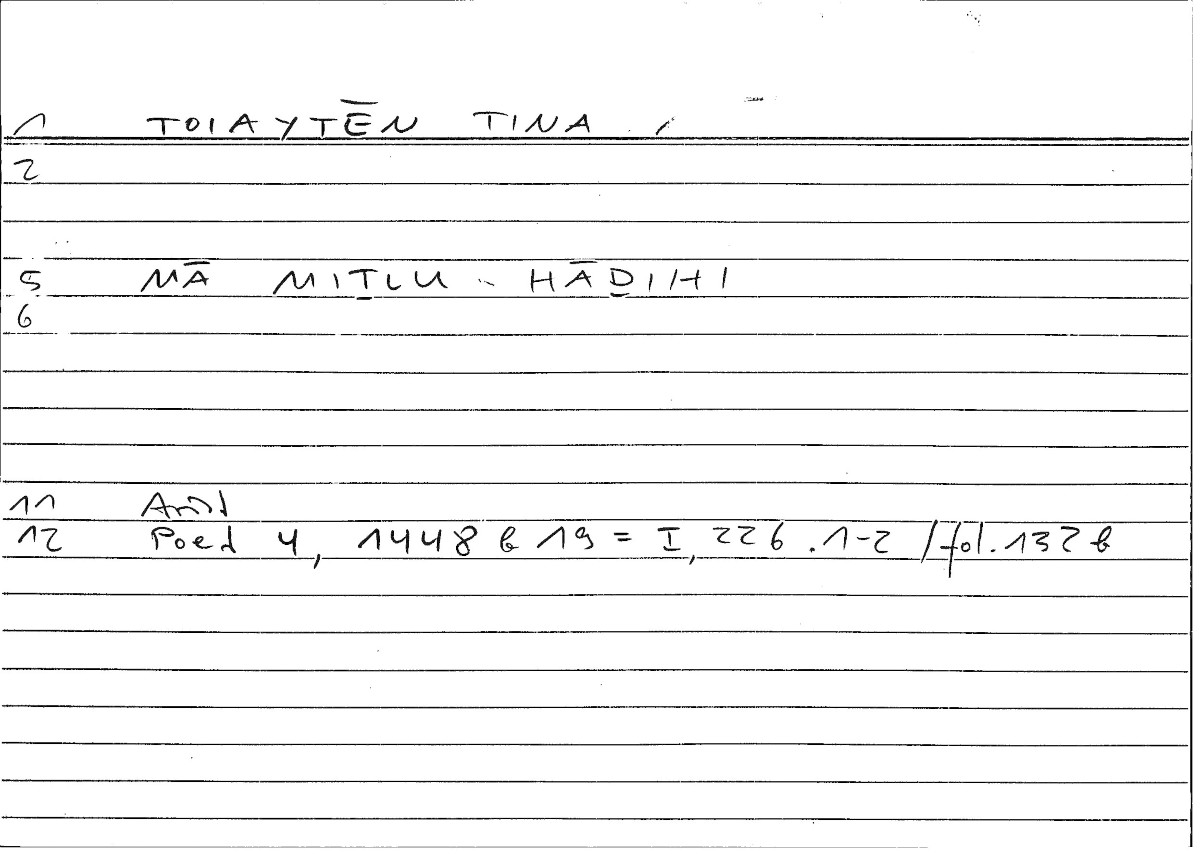 1 TOIAYTĒN TINA
2
5 MĀ MIṮLU HĀḎIHI
6
11 Arist
12 Poet 4, 1448 b 19 = I, 226.1-2 / fol. 132 b